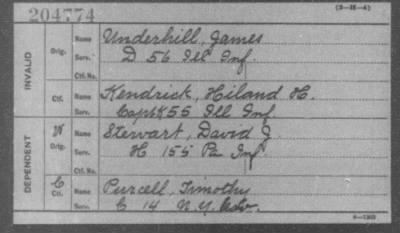 204774
(3—H—4)
INVALID
Orig.
Name Underhill, James
Serv. D 56 Ill Inf.
Ctf. No.
Ctf.
Name Kendrick, Hiland H.
Serv. Capt K 55 Ill Inf
DEPENDENT
W Orig.
Name Stewart, David J
Serv. H 155 Pa Inf.
Ctf. No.
C Ctf.
Name Purcell, Timothy
Serv. C 14 N.Y.